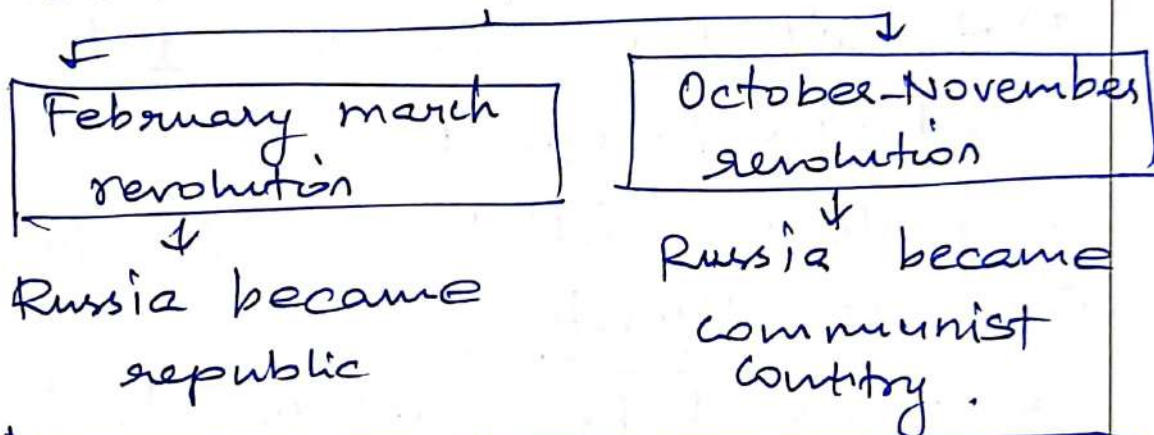 February march
revolution
Russia became
republic
October-November
revolution
Russia became
communist
Contitry.